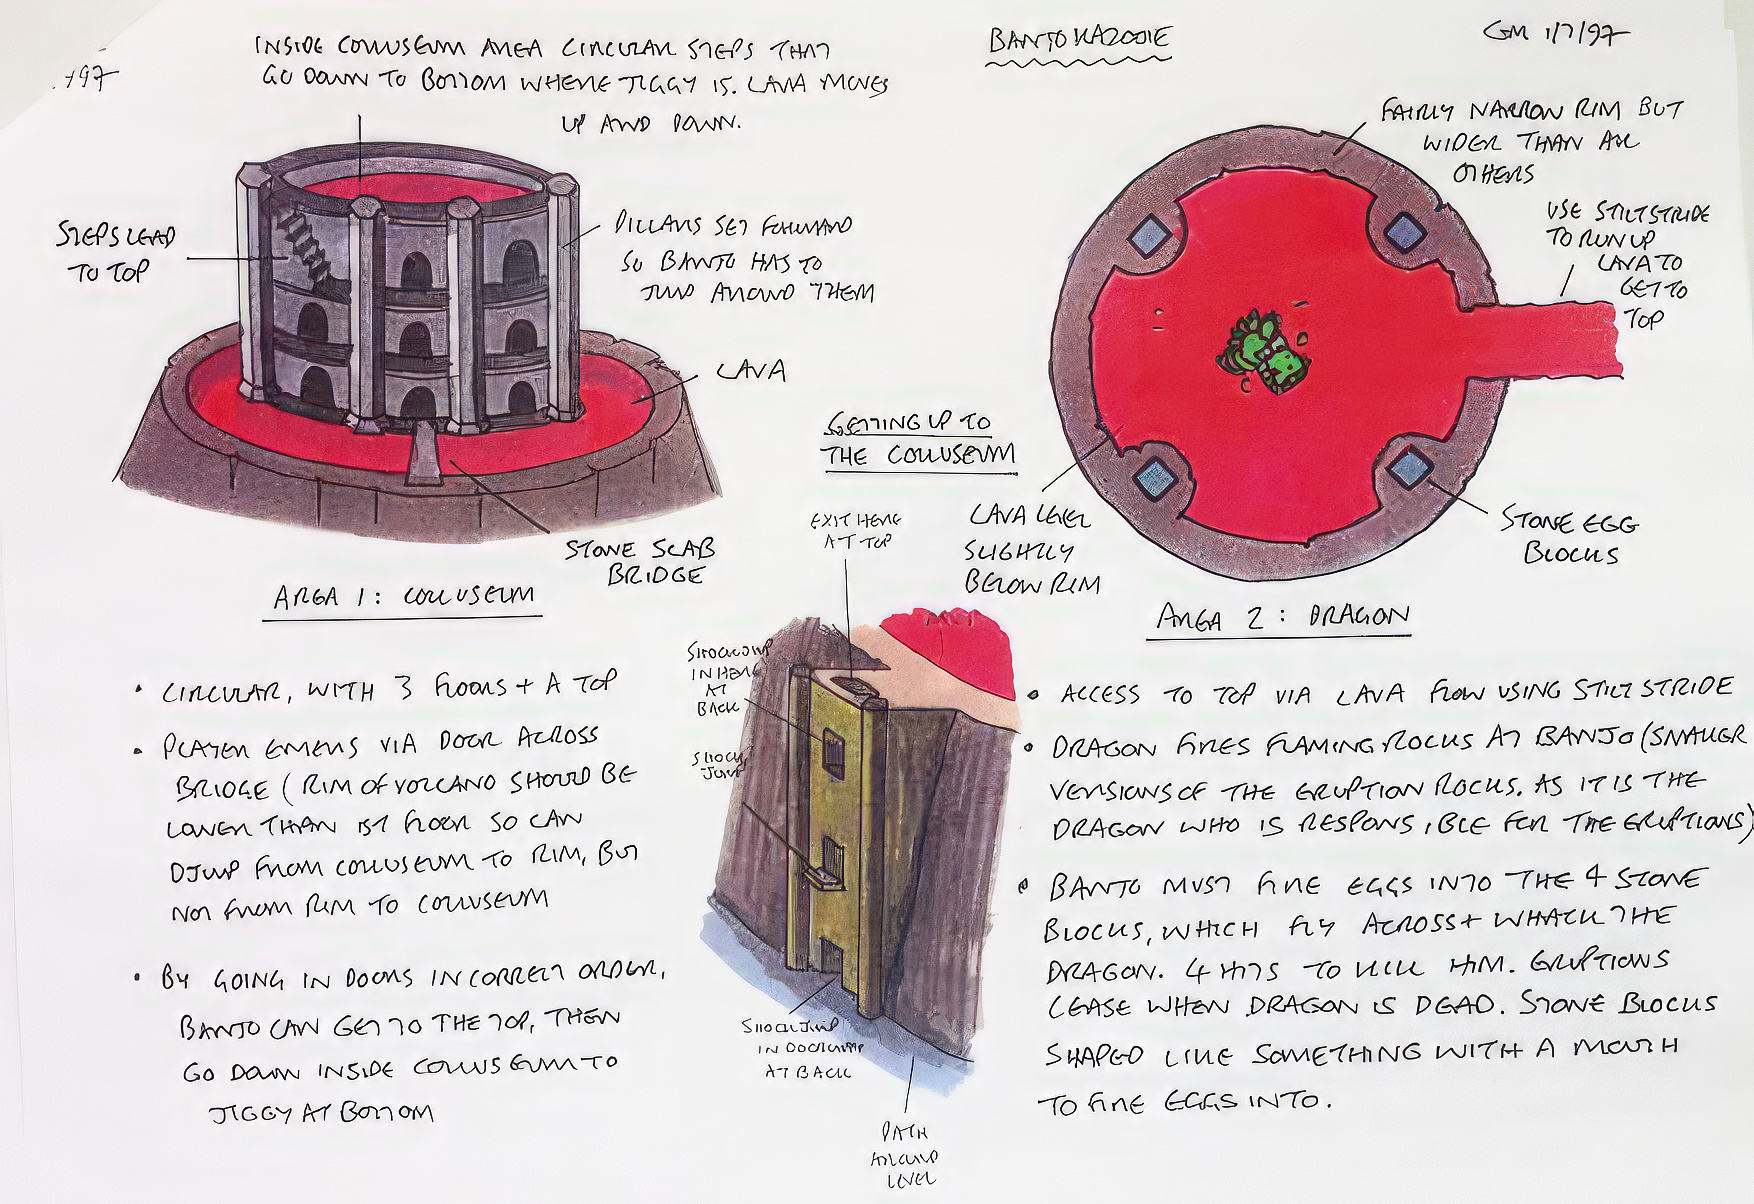 BANJO KAZOOIE
GM 1/7/97
/97
INSIDE COLLUSEUM AREA CIRCULAR STEPS THAT
GO DOWN TO BOTTOM WHERE JIGGY IS. LAVA MOVES
UP AND DOWN.
STEPS LEAD
TO TOP
PILLARS SET FORWARD
SO BANJO HAS TO
JUMP AROUND THEM
LAVA
STONE SLAB
BRIDGE
AREA 1: COLLUSEUM
• CIRCULAR, WITH 3 FLOORS + A TOP
• PLAYER ENTERS VIA DOOR ACROSS
BRIDGE (RIM OF VOLCANO SHOULD BE
LOWER THAN 1ST FLOOR SO CAN
DJUMP FROM COLLUSEUM TO RIM, BUT
NOT FROM RIM TO COLLUSEUM
• BY GOING IN DOORS IN CORRECT ORDER,
BANJO CAN GET TO THE TOP, THEN
GO DOWN INSIDE COLLUSEUM TO
JIGGY AT BOTTOM
GETTING UP TO
THE COLLUSEUM
EXIT HERE
AT TOP
SHOCKJUMP
IN HERE
AT
BACK
SHOCK
JUMP
SHOCKJUMP
IN DOORWAY
AT BACK
PATH
AROUND
LEVEL
FAIRLY NARROW RIM BUT
WIDER THAN ALL
OTHERS
USE STILTSTRIDE
TO RUN UP
LAVA TO
GET TO
TOP
LAVA LEVEL
SLIGHTLY
BELOW RIM
STONE EGG
BLOCKS
AREA 2: DRAGON
• ACCESS TO TOP VIA LAVA FLOW USING STILTSTRIDE
• DRAGON FIRES FLAMING ROCKS AT BANJO (SMALLER
VERSIONS OF THE ERUPTION ROCKS. AS IT IS THE
DRAGON WHO IS RESPONSIBLE FOR THE ERUPTIONS)
• BANJO MUST FIRE EGGS INTO THE 4 STONE
BLOCKS, WHICH FLY ACROSS + WHACK THE
DRAGON. 4 HITS TO KILL HIM. ERUPTIONS
CEASE WHEN DRAGON IS DEAD. STONE BLOCKS
SHAPED LIKE SOMETHING WITH A MOUTH
TO FIRE EGGS INTO.